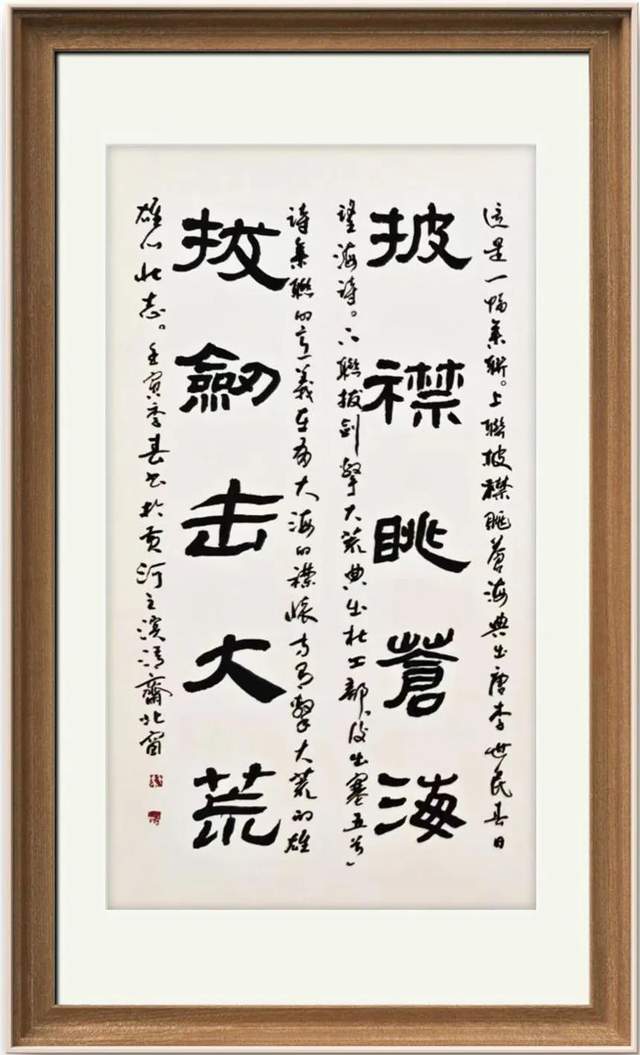 这是一幅集联。上聯披襟眺蒼海典出唐李世民春日
披襟眺蒼海
望海诗。下聯拔剑擊大荒典出杜工部後出塞五首
诗集聯的意義在有大海的襟懷方有擊大荒的雄
拔劒击大荒
雄心壮志。壬寅季春书於黄河之滨清齋北窗